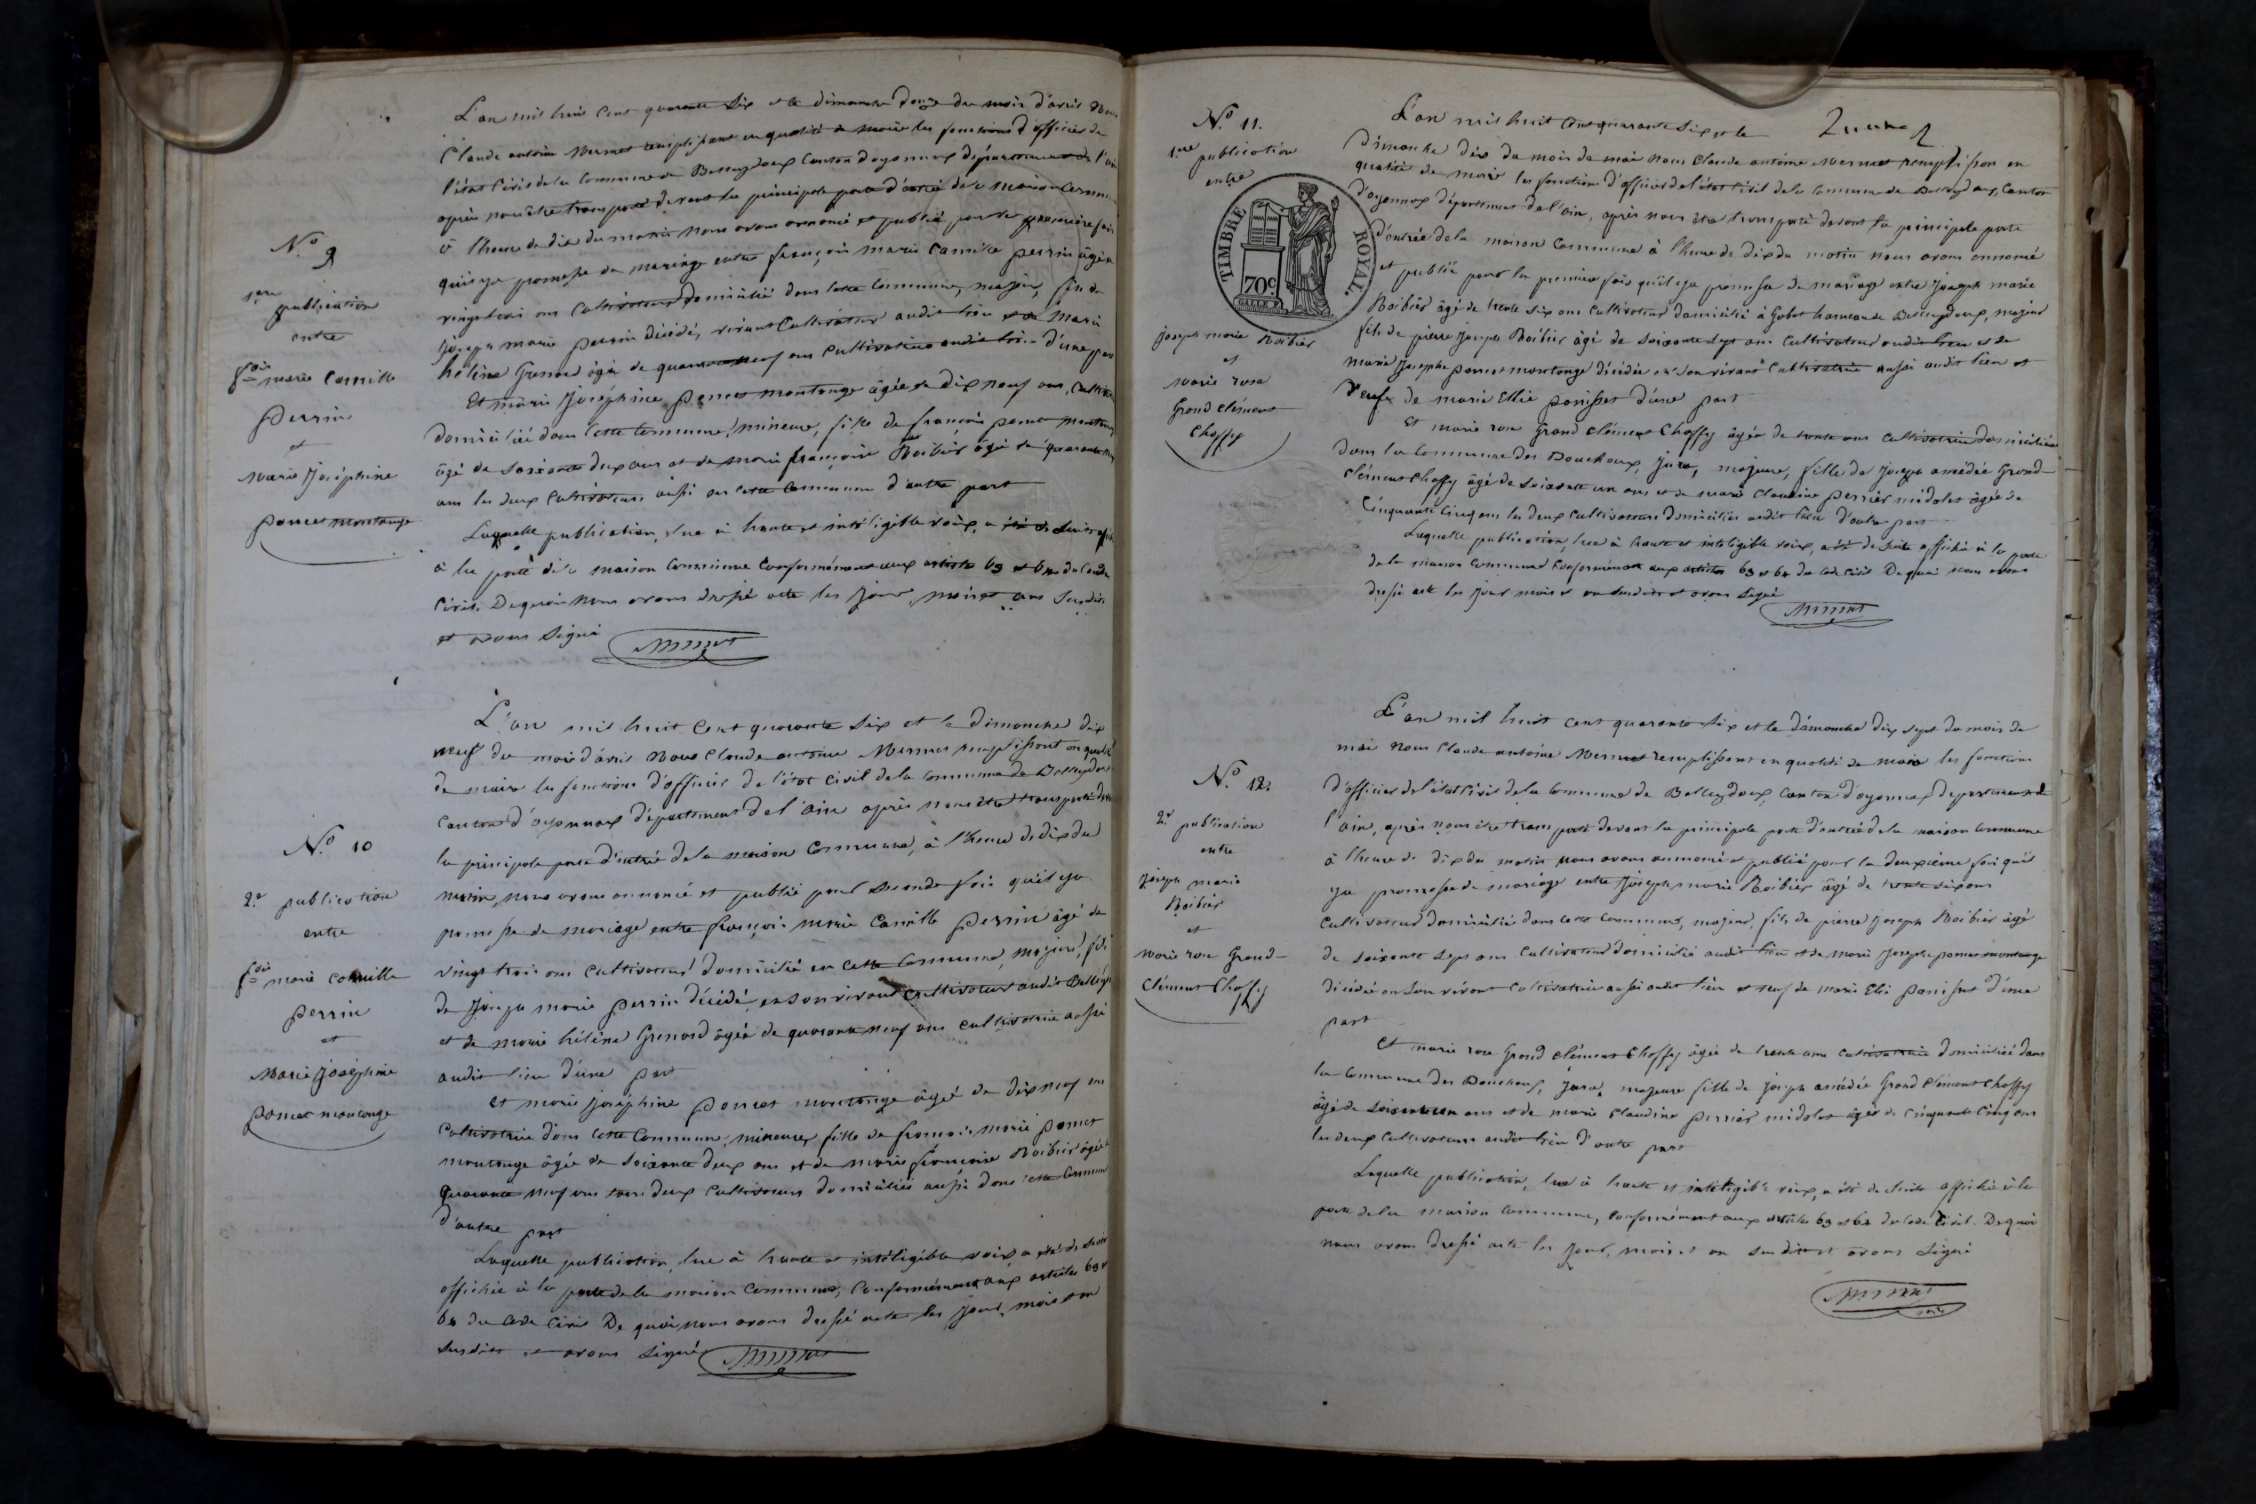 L'an mil huit cent quarante six et le dimanche douze du mois d'avril nous
Claude antoine Mermet remplissant en qualité de maire les fonctions d'officier de
l'état civil de la commune de Belleydoux canton d'oyonnax département de l'ain
après nous être transporté devant la principale porte d'entrée de la maison commune
à l'heure de dix du matin nous avons annoncé et publié pour la première fois
qu'il y a promesse de mariage entre françois marie Camille perrin âgé de
vingt trois ans cultivateur domicilié dans cette commune, majeur, fils de
Joseph marie perrin décédé, vivant cultivateur audit lieu et de Marie
héline Grenard âgée de quarante neuf ans cultivatrice audit lieu d'une part
Et marie Joséphine poncet montange âgée de dix neuf ans, cultivatrice
domiciliée dans cette commune, mineure, fille de françois poncet montange
âgé de soixante deux ans et de marie françoise Roibier âgée de quarante neuf
ans les deux cultivateurs aussi en cette commune d'autre part
Laquelle publication, lue à haute et intéligible voix, a été de suite affichée
à la porte de la maison commune conformément aux articles 63 et 64 du Code
civil. De quoi nous avons dressé acte les jour, mois et an susdits
et avons signé Mermet
N.º 9
1ere publication
entre
fois marie Camille
Perrin
et
Marie Joséphine
poncet montange
L'an mil huit cent quarante six et le dimanche dix
neuf du mois d'avril Nous Claude antoine Mermet remplissant en qualité
de maire les fonctions d'officier de l'état civil de la commune de Belleydoux
canton d'oyonnax département de l'ain après nous être transporté devant
la principale porte d'entrée de la maison commune, à l'heure de dix du
matin, nous avons annoncé et publié pour seconde fois qu'il y a
promesse de mariage entre françois marie Camille perrin âgé de
vingt trois ans cultivateur domicilié en cette commune, majeur, fils
de Joseph marie perrin décédé, en son vivant cultivateur audit
et de marie héline Grenard âgée de quarante neuf ans cultivatrice aussi
audit lieu d'une part
et marie Joséphine poncet montange âgé de dix neuf ans
cultivatrice dans cette commune, mineure, fille de françois marie poncet
montange âgé de soixante deux ans et de marie françoise Roibier âgée de
quarante neuf ans tous deux cultivateurs domiciliés aussi dans cette commune
d'autre part
Laquelle publication, lue à haute et intéligible voix, a été de suite
affichée à la porte de la maison commune, conformément aux articles 63 et
64 du Code civil De quoi nous avons dressé acte les jour, mois et an
susdits et avons signé Mermet
N.º 10
2.e publication
entre
fois marie camille
perrin
et
Marie Joséphine
poncet montange
N.º 11.
1ere publication
entre
TIMBRE ROYAL.
70c
Joseph marie Roibier
et
Marie rose
Grand clément
Choffey
L'an mil huit cent quarante six et le
Dimanche dix du mois de mai nous Claude antoine Mermet remplissan en
qualité de maire les fonctions d'officier de l'état civil de la commune de Belleydoux, canton
d'oyonnax département de l'ain, après nous être transporté devant la principale porte
d'entrée de la maison commune à l'heure de dix du matin nous avons annoncé
et publié pour la première fois qu'il y a promesse de mariage entre Joseph marie
Roibier âgé de trente six ans cultivateur domicilié à Gobet hameau de Belleydoux, majeur
fils de pierre Joseph Roibier âgé de soixante sept ans cultivateur audit lieu et de
marie Josephe poncet montange décédée en son vivant cultivatrice aussi audit lieu et
veuf de marie Ellie panisset d'une part
Et marie rose Grand clément Choffey âgée de trente ans cultivatrice domiciliée
dans la commune des Bouchoux, Jura, majeure, fille de Joseph amédée Grand-
clément Choffey âgé de soixante un ans et de marie Claudine perrier midolet âgée de
cinquante cinq ans les deux cultivateurs domiciliés audit lieu d'autre part
Laquelle publication, lue à haute et intéligible voix, a été de suite affichée à la porte
de la maison commune conformément aux articles 63 et 64 du Code civil De quoi nous avons
dressé acte les jour mois et an susdits et avons signé
Mermet
N.º 12.
2.e publication
entre
Joseph marie
Roibier
et
Marie rose Grand-
Clément Choffey
L'an mil huit cent quarante six et le dimanche dix sept du mois de
mai nous Claude antoine Mermet remplissant en qualité de maire les fonctions
d'officier de l'état civil de la commune de Belleydoux, canton d'oyonnax, département de
l'ain, après nous être transporté devant la principale porte d'entrée de la maison commune
à l'heure de dix du matin nous avons annoncé et publié pour la deuxième fois qu'il
y a promesse de mariage entre Joseph marie Roibier âgé de trente six ans
cultivateur domicilié dans cette commune, majeur, fils de pierre Joseph Roibier âgé
de soixante sept ans cultivateur domicilié audit lieu et de marie Josephe poncet montange
décédée en son vivant cultivatrice aussi audit lieu et veuf de marie Elie panisset d'une
part
Et marie rose Grand clément Choffey âgée de trente ans cultivatrice domiciliée dans
la commune des Bouchoux, Jura, majeure fille de Joseph amédée Grand clément Choffey
âgé de soixante un ans et de marie Claudine perrier midolet âgée de cinquante cinq ans
les deux cultivateurs audit lieu d'autre part
Laquelle publication, lue à haute et intéligible voix, a été de suite affichée à la
porte de la maison commune, conformément aux articles 63 et 64 du Code civil. De quoi
nous avons dressé acte les jour, mois et an susdits et avons signé
Mermet